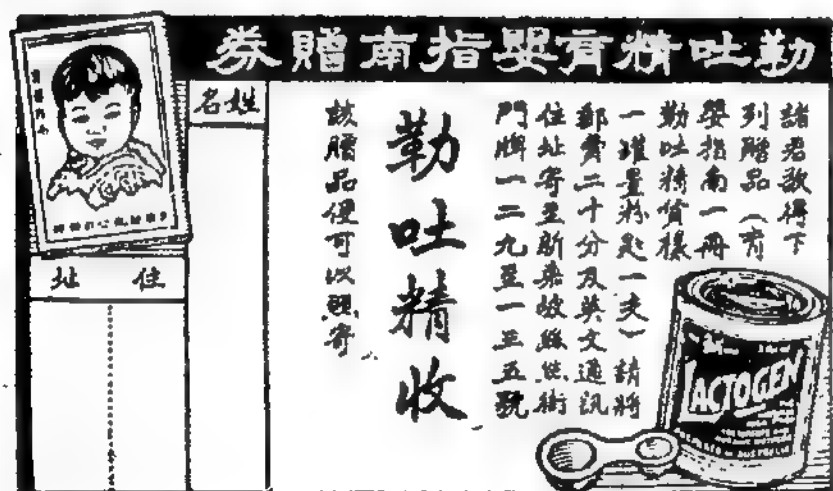 勒吐精育嬰指南贈券
諸君欲得下
列贈品（育
嬰指南一冊
勒吐精貨樣
一罐量粉匙一支）請將
郵費二十分及英文通訊
住址寄至新嘉坡絲街
門牌一二九至一三五號
勒吐精收
該贈品便可以寄
姓名
住址
LACTOGEN